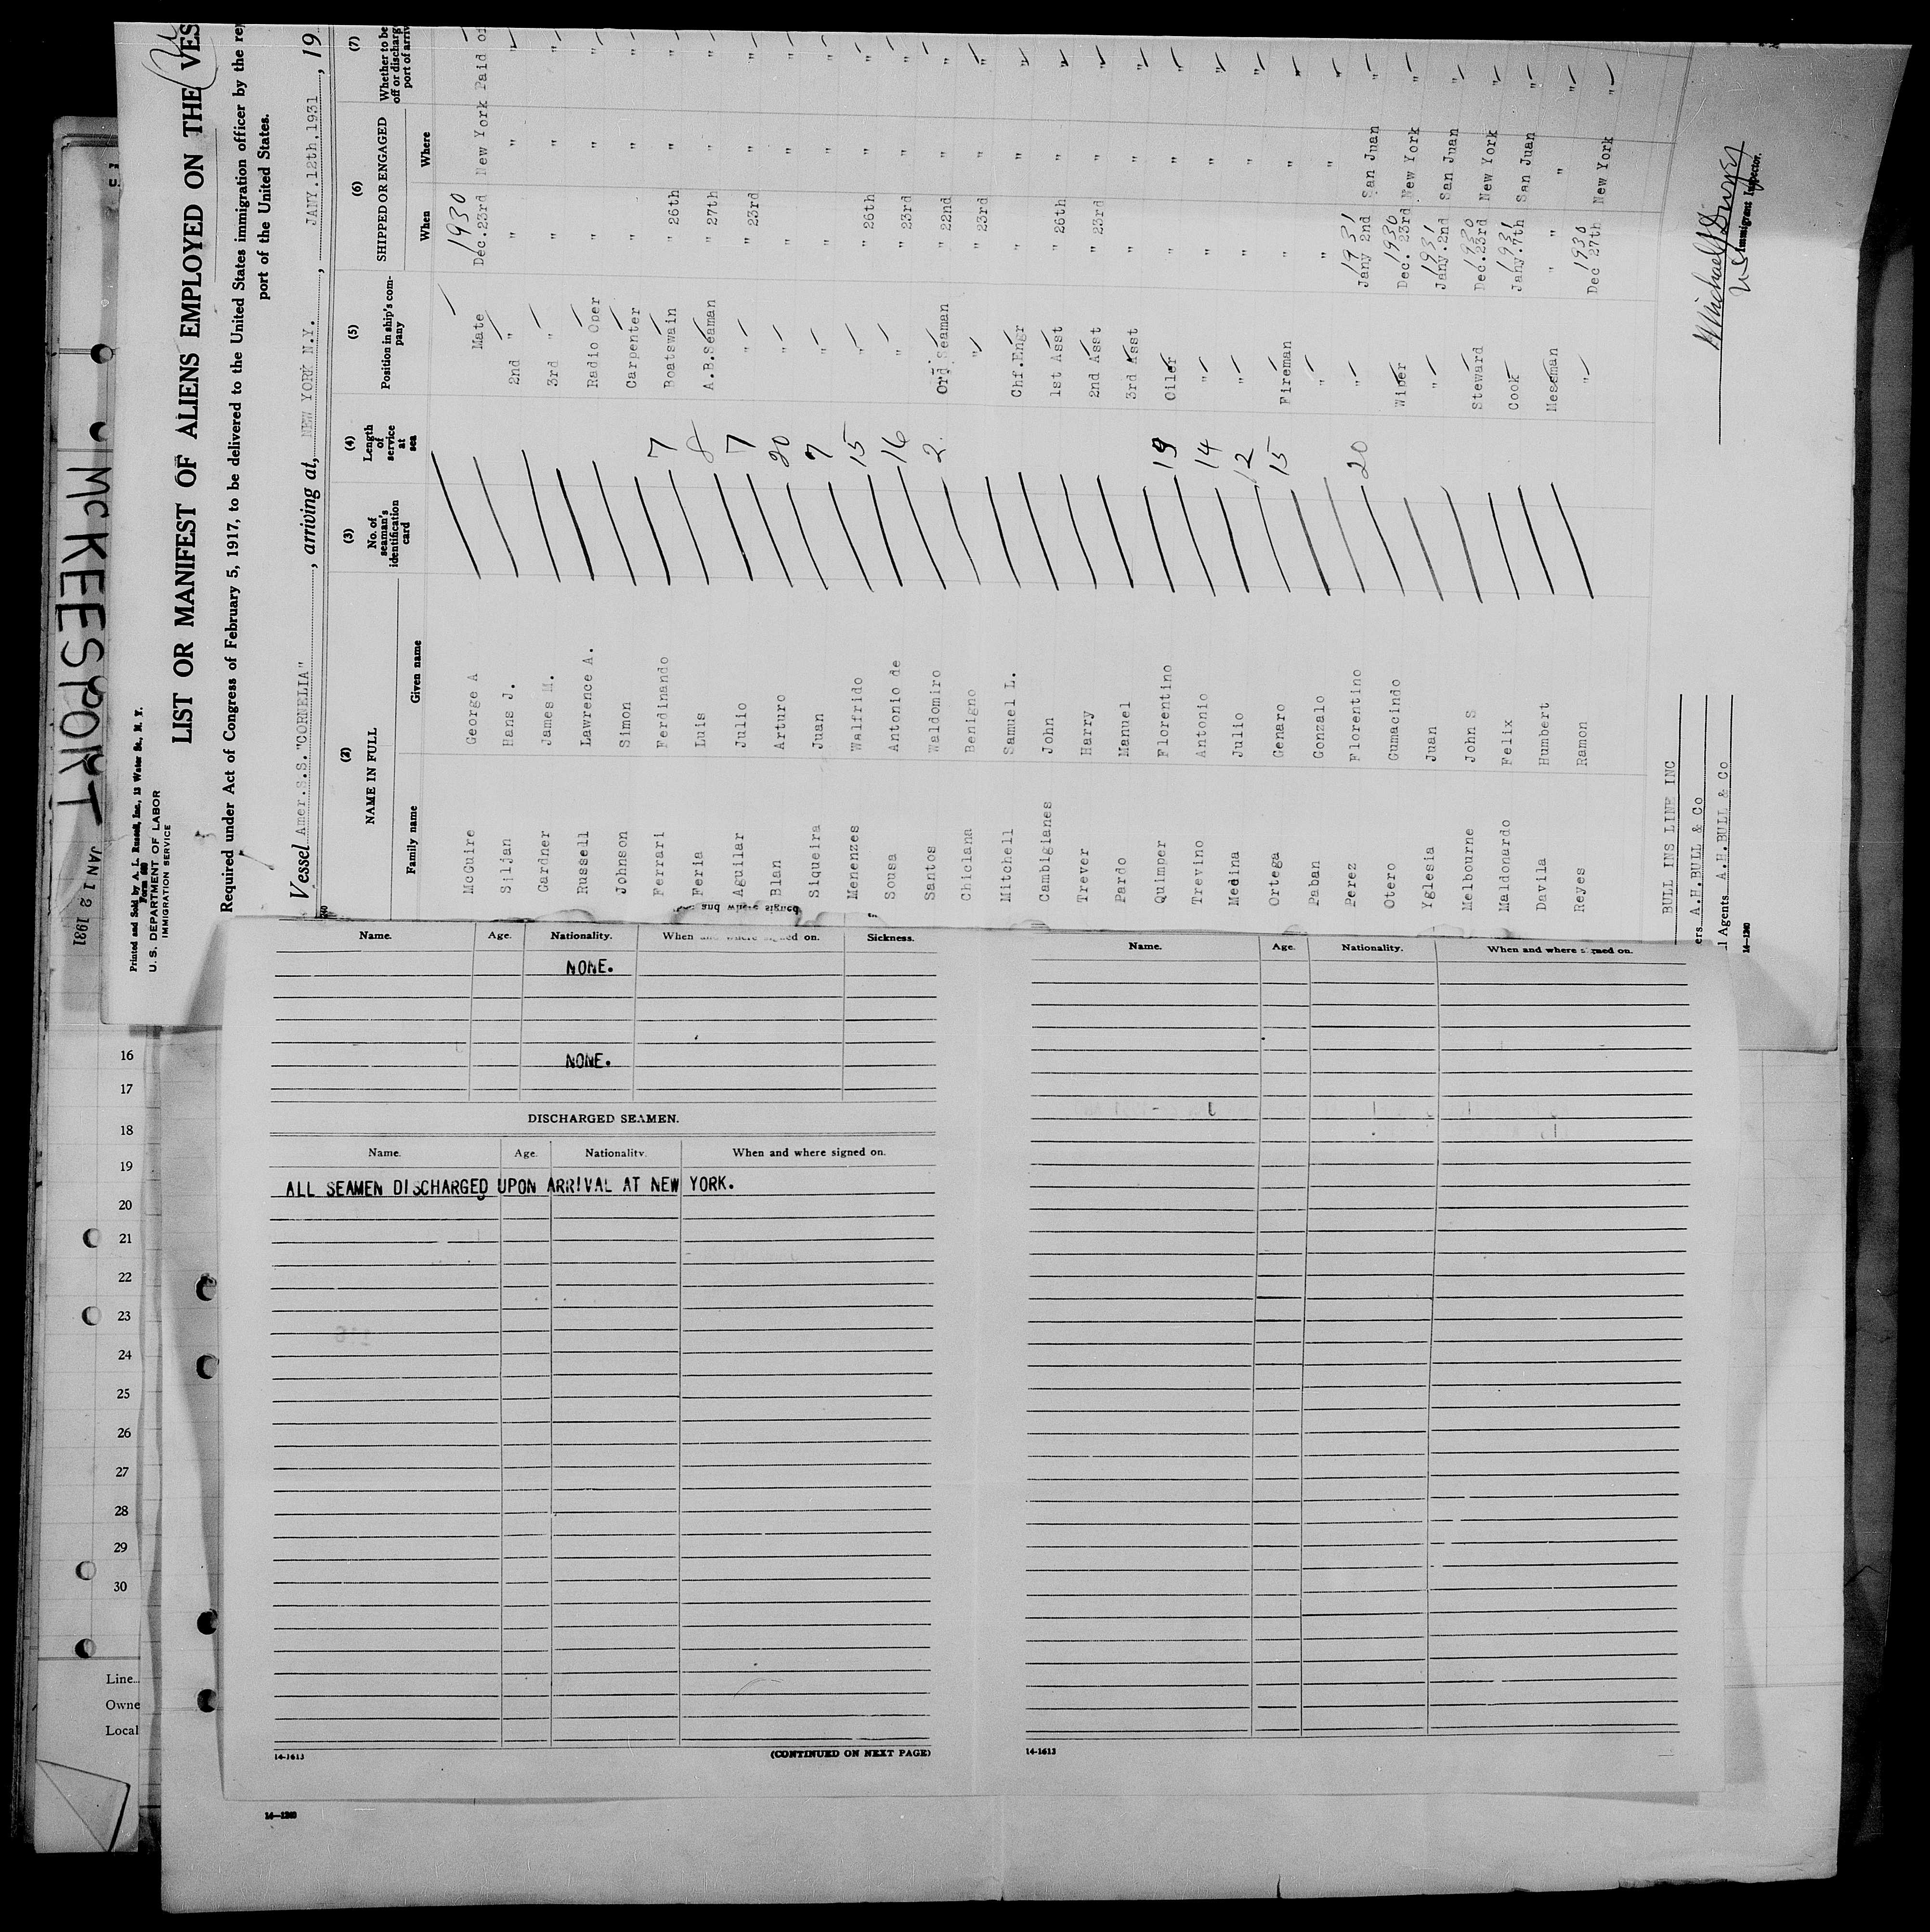 McKEESPORT
JAN 12 1931
Printed and Sold by A. L. Russell, Inc., 13 Water St., N. Y.
Form 680
U. S. DEPARTMENT OF LABOR
IMMIGRATION SERVICE
LIST OR MANIFEST OF ALIENS EMPLOYED ON THE VES
Required under Act of Congress of February 5, 1917, to be delivered to the United States immigration officer by the re
port of the United States.
Vessel Amer.S.S."CORNELIA", arriving at, NEW YORK N.Y., JANY.12th.1931, 19
(2) (3) (4) (5) (6) (7)
NAME IN FULL No. of seaman's identification card Length of service at sea Position in ship's company SHIPPED OR ENGAGED Whether to be off or discharg port of arriv
Family name Given name When Where
1930
McGuire George A Mate Dec.23rd New York Paid of
Siljan Hans J. 2nd " " " "
Gardner James M. 3rd " " " "
Russell Lawrence A. Radio Oper " " "
Johnson Simon Carpenter " " "
Ferrari Ferdinando 7 Boatswain " 26th " "
Feria Luis 8 A.B.Seaman " 27th " "
Aguilar Julio 7 " " 23rd " "
Blan Arturo 30 " " " "
Siqueira Juan 7 " " " "
Menenzes Walfrido 15 " " 26th " "
Sousa Antonio de 16 " " 23rd " "
Santos Waldomiro 2 Ord Seaman " 22nd " "
Chiclana Benigno " " 23rd " "
Mitchell Samuel L. Chf.Engr " " "
Cambigianes John 1st Asst " 26th " "
Trever Harry 2nd Asst " 23rd " "
Pardo Manuel 3rd Asst " " "
Quimper Florentino 19 Oiler " " "
Trevino Antonio 14 " " " "
Medina Julio 12 " " " "
Ortega Genaro 15 Fireman " " "
Paban Gonzalo " " " "
1931
Perez Florentino 20 " Jany 2nd San Juan "
1930
Otero Gumacindo Wiper Dec. 23rd New York "
1931
Yglesia Juan " Jany.2nd San Juan "
1930
Melbourne John S Steward Dec.23rd New York "
1931
Maldonardo Felix Cook Jany.7th San Juan "
Davila Humbert Mesaman " " "
1930
Reyes Ramon " Dec 27th New York "
BULL INS LINE INC
ers A.H.BULL & Co
l Agents A.H.BULL & Co
14—1240
Immigrant Inspector.
and where signed
Name. Age. Nationality. When and where signed on. Sickness.
NONE.
NONE.
DISCHARGED SEAMEN.
Name. Age. Nationality. When and where signed on.
ALL SEAMEN DISCHARGED UPON ARRIVAL AT NEW YORK.
14-1613
(CONTINUED ON NEXT PAGE)
Name. Age. Nationality. When and where signed on.
14-1613
16
17
18
19
20
21
22
23
24
25
26
27
28
29
30
Line
Owne
Local
14—1240